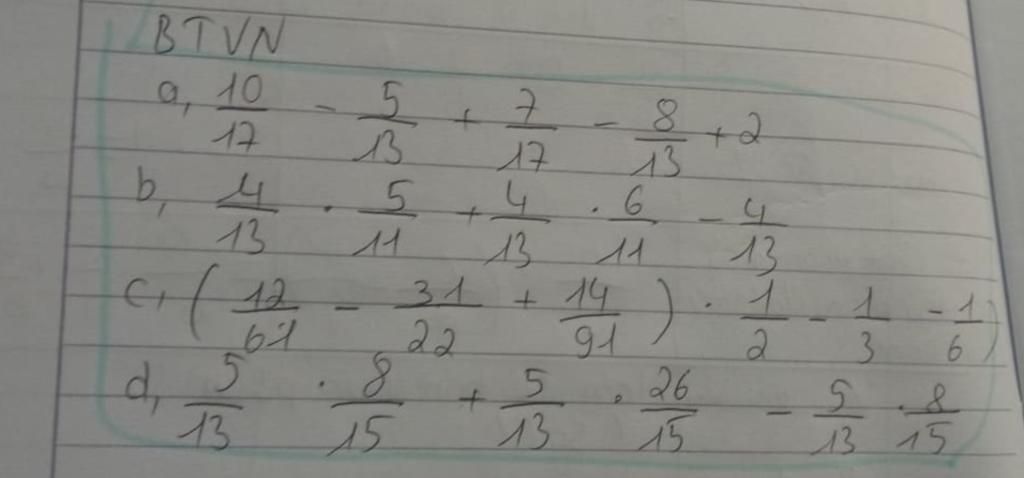 BTVN
a, 10/17 - 5/13 + 7/17 - 8/13 + 2
b, 4/13 . 5/11 + 4/13 . 6/11 - 4/13
c, ( 12/61 - 31/22 + 14/91 ) . 1/2 - 1/3 - 1/6 )
d, 5/13 . 8/15 + 5/13 . 26/15 - 5/13 . 8/15